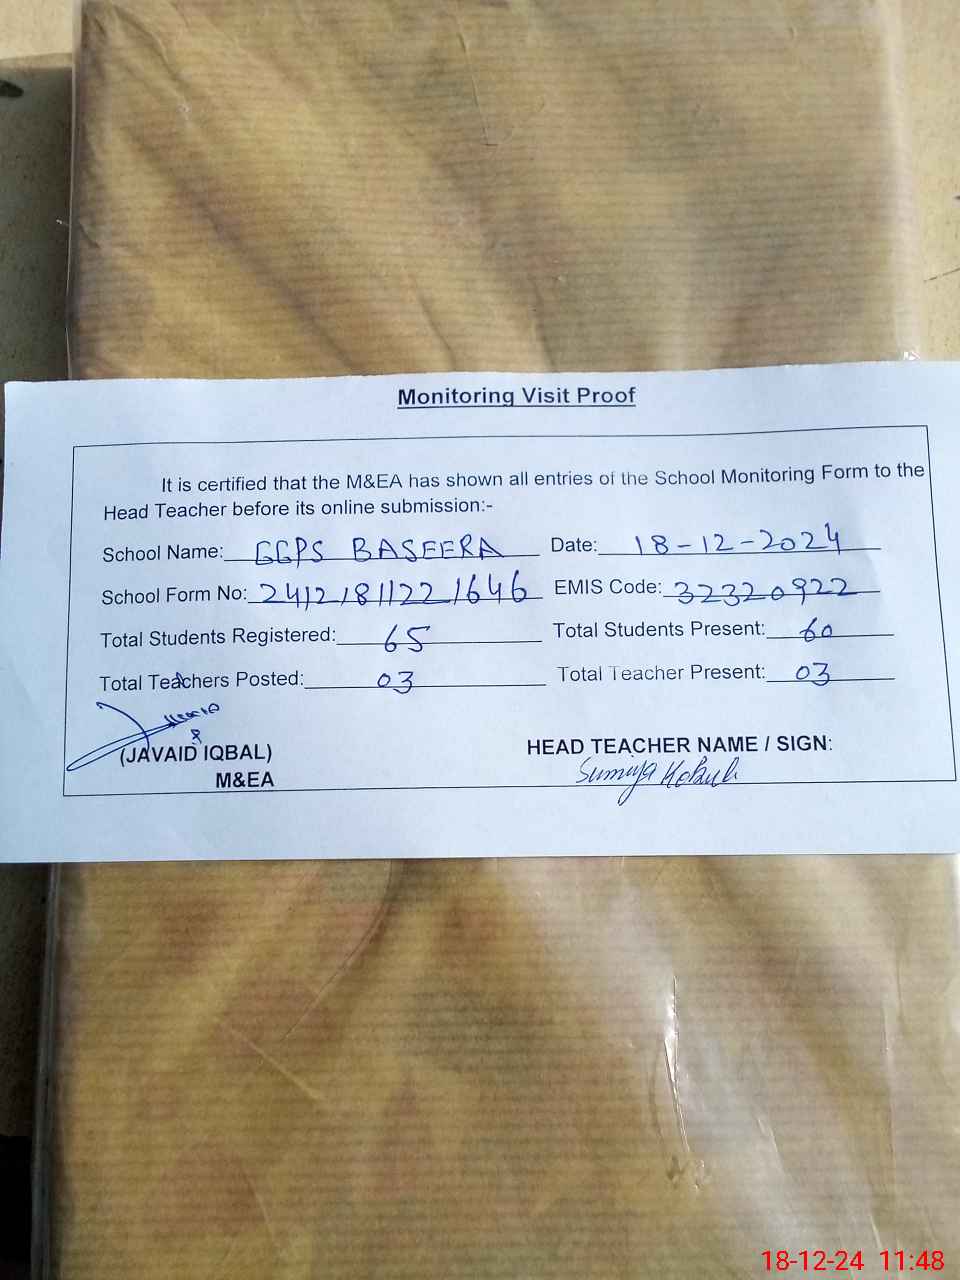 Monitoring Visit Proof
It is certified that the M&EA has shown all entries of the School Monitoring Form to the
Head Teacher before its online submission:-
School Name: GGPS BASEERA Date: 18-12-2024
School Form No: 24121811221646 EMIS Code: 32320922
Total Students Registered: 65 Total Students Present: 60
Total Teachers Posted: 03 Total Teacher Present: 03
(JAVAID IQBAL) HEAD TEACHER NAME / SIGN:
M&EA Sumiya
18-12-24 11:48